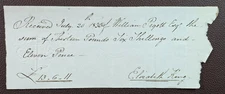 Received July 26th 1830 of William Pigott Esqr the
sum of Thirteen Pounds Six Shillings and
Eleven Pence
£13-6-11 Elizabeth King